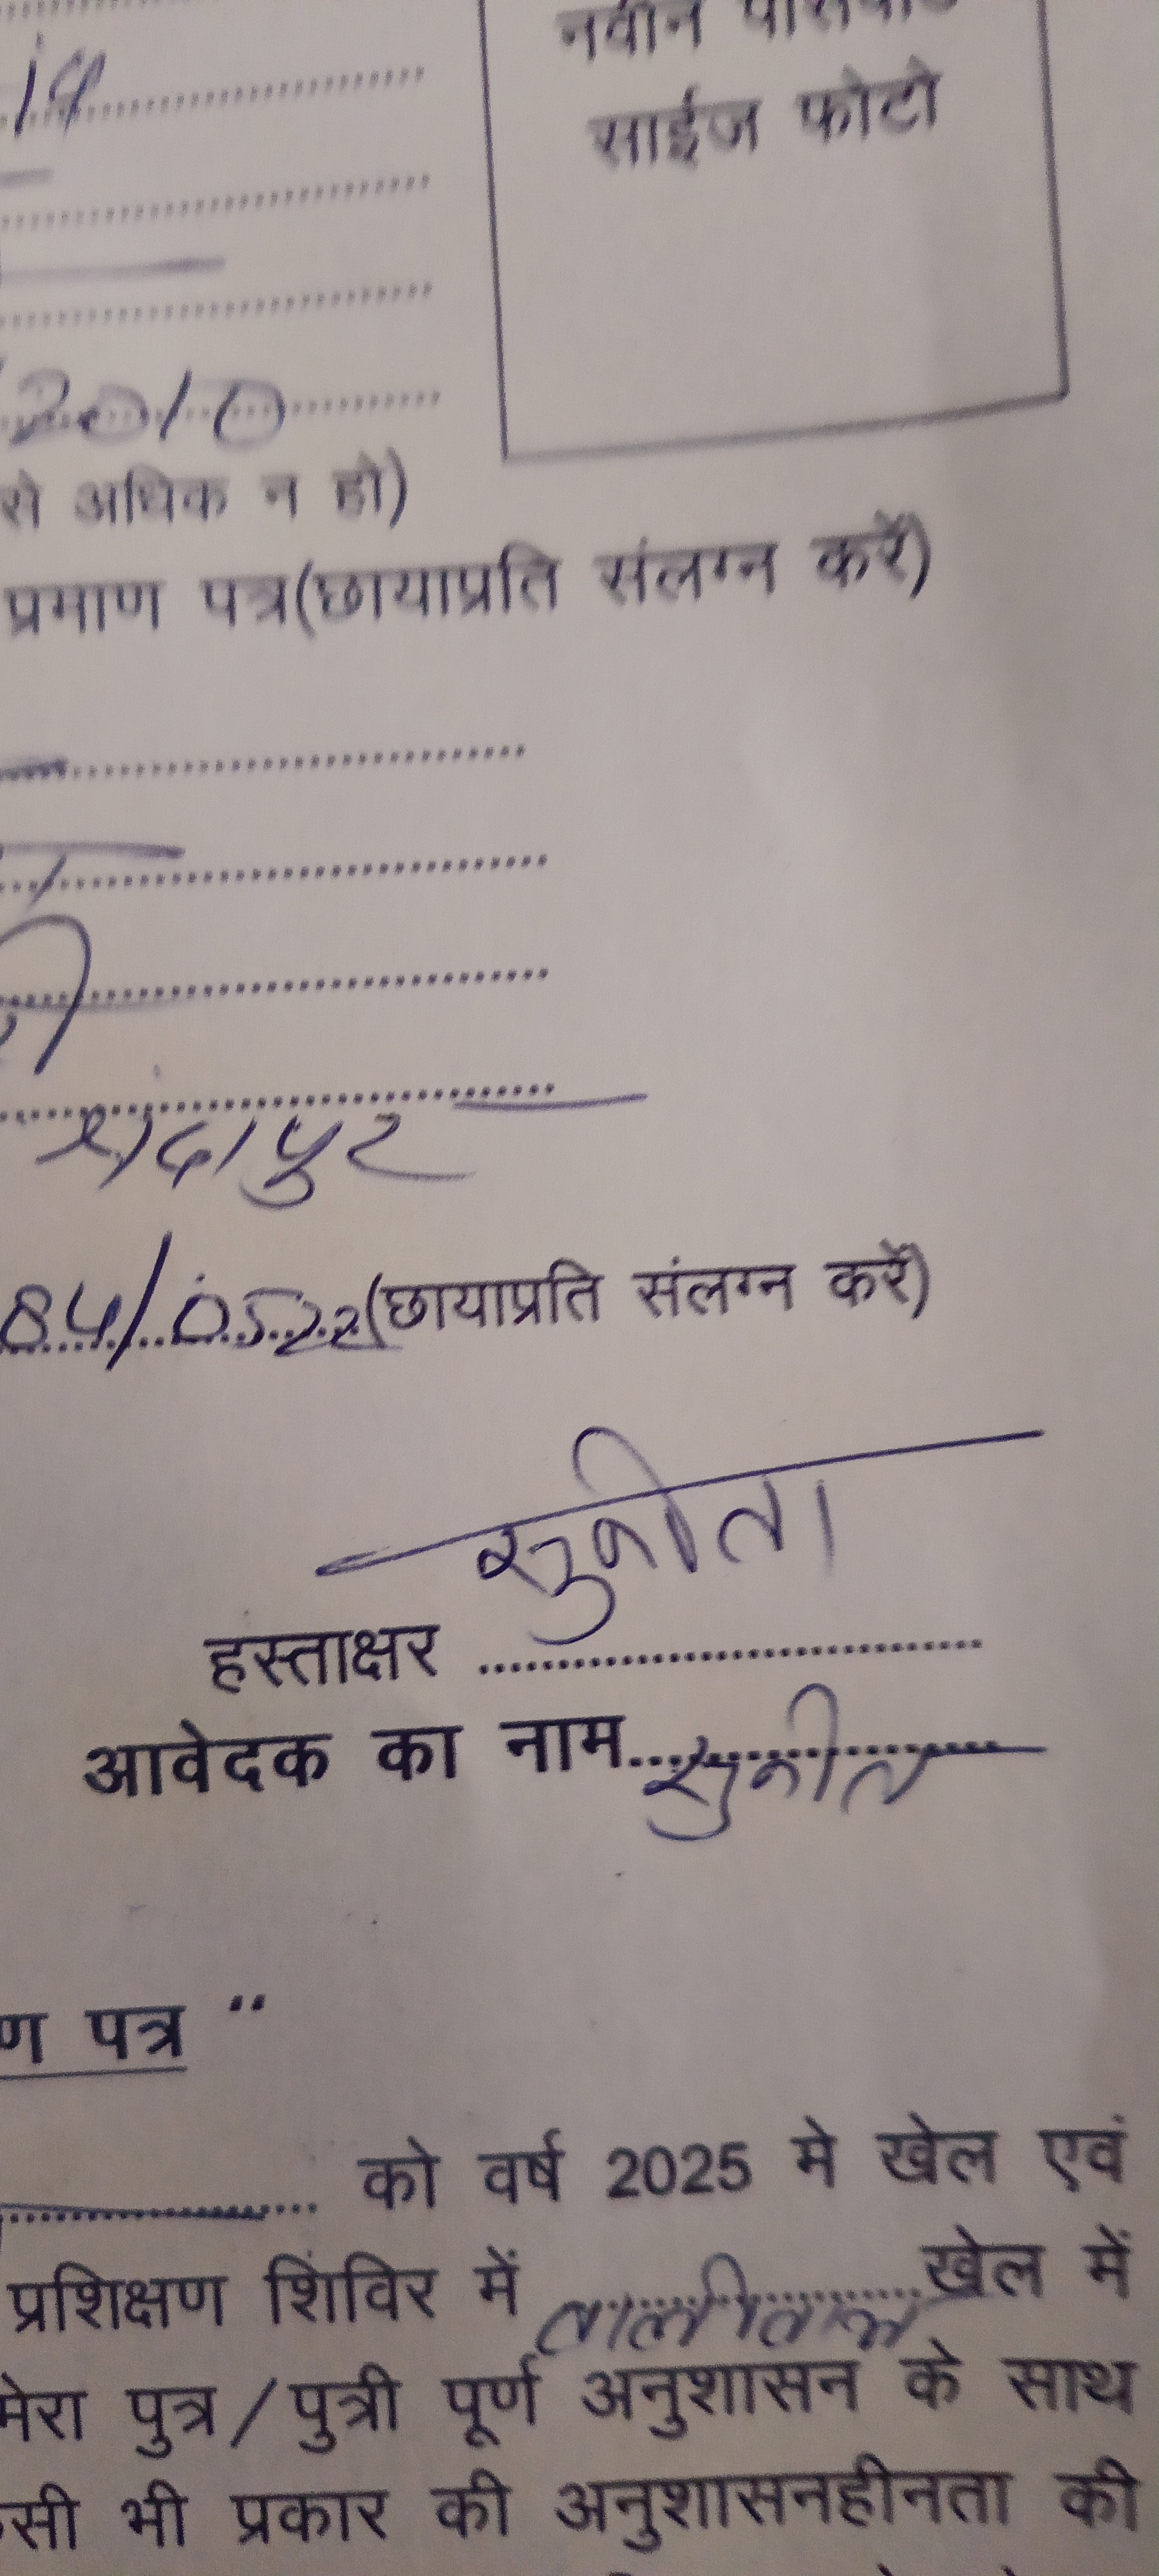 नवीन पासपोर्ट
साईज फोटो
2010
से अधिक न हो)
प्रमाण पत्र(छायाप्रति संलग्न करें)
84/0522(छायाप्रति संलग्न करें)
सुनीता
हस्ताक्षर
आवेदक का नाम सुनीता
ण पत्र "
को वर्ष 2025 मे खेल एवं
प्रशिक्षण शिविर में वालीवाल खेल में
मेरा पुत्र/पुत्री पूर्ण अनुशासन के साथ
सी भी प्रकार की अनुशासनहीनता की